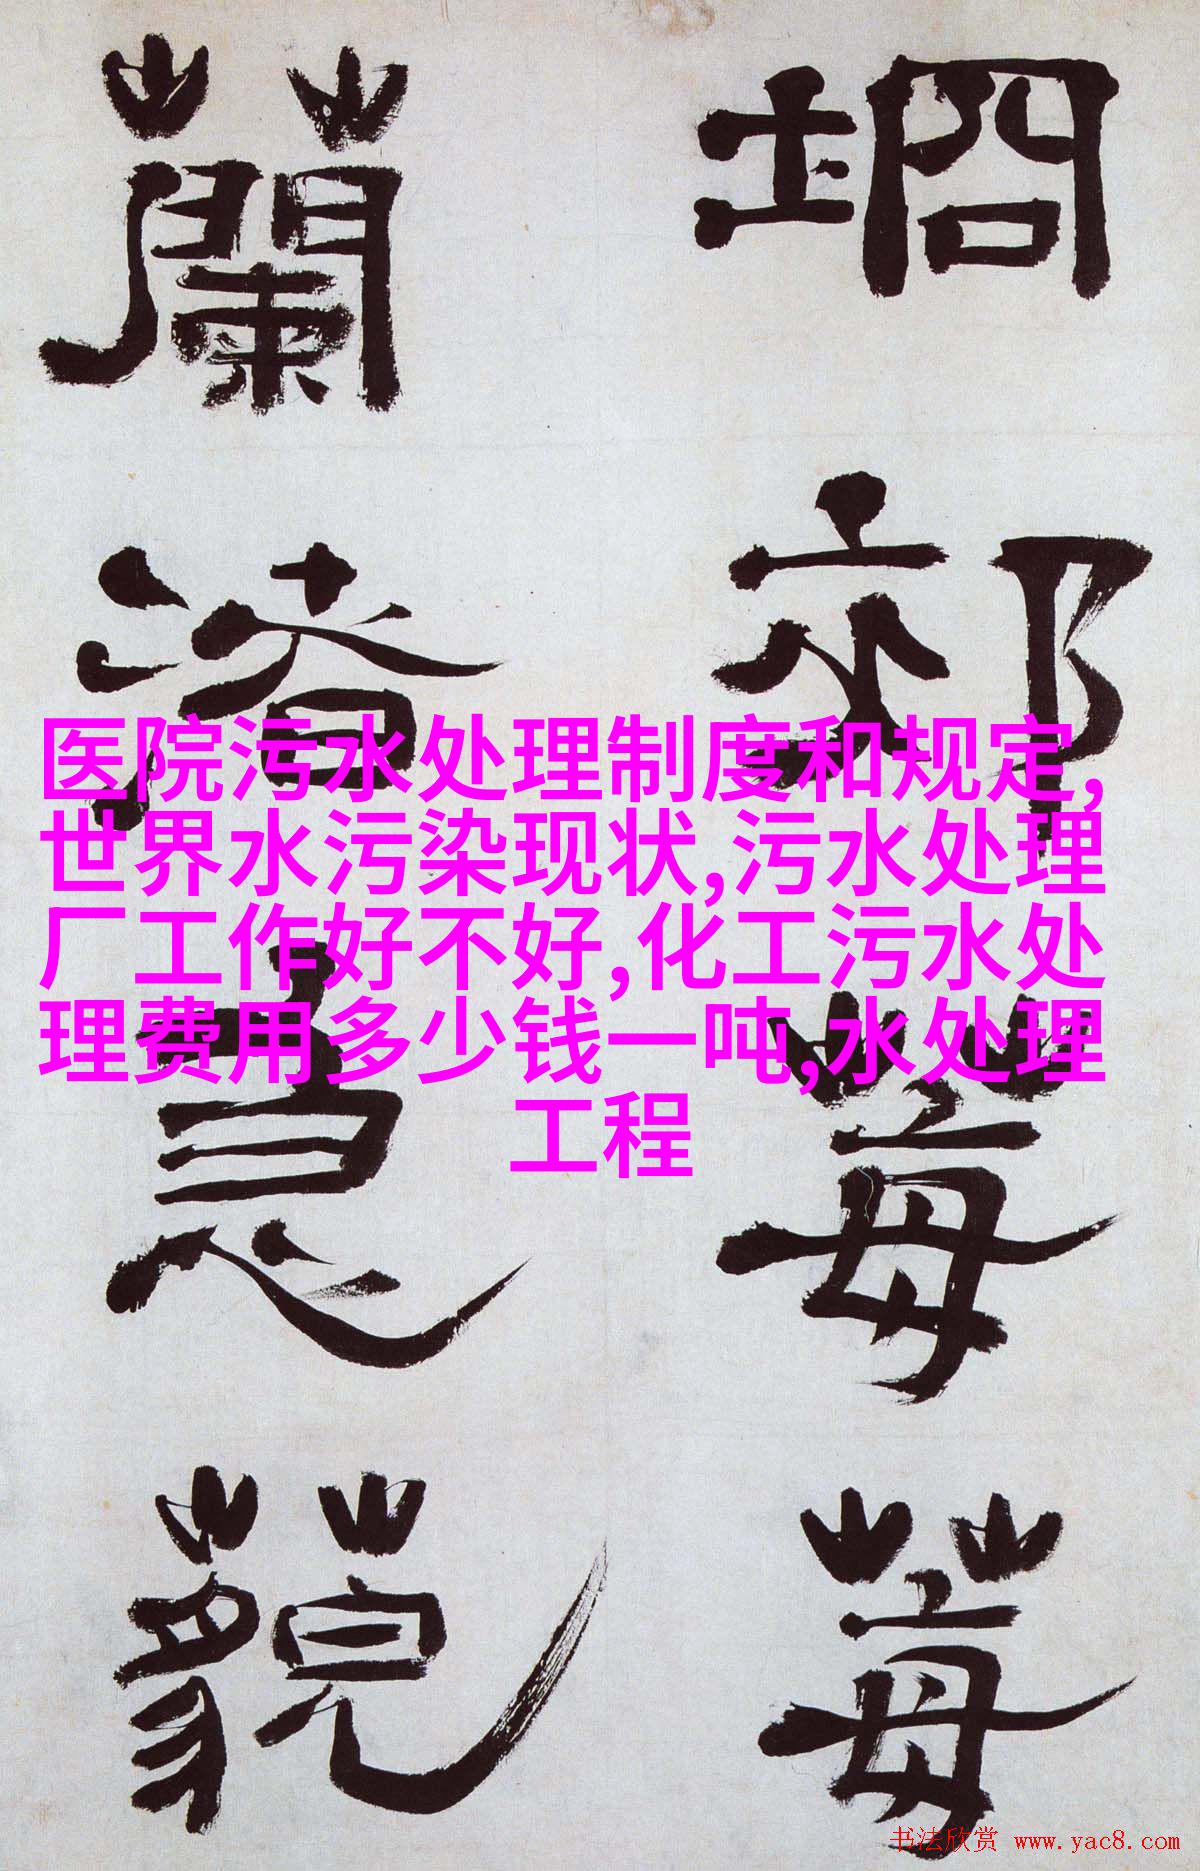 坰郊莓莓
蘭渚藐
医院污水处理制度和规定,
世界水污染现状,污水处理
厂工作好不好,化工污水处
理费用多少钱一吨,水处理
工程
书法欣赏 www.yac8.com